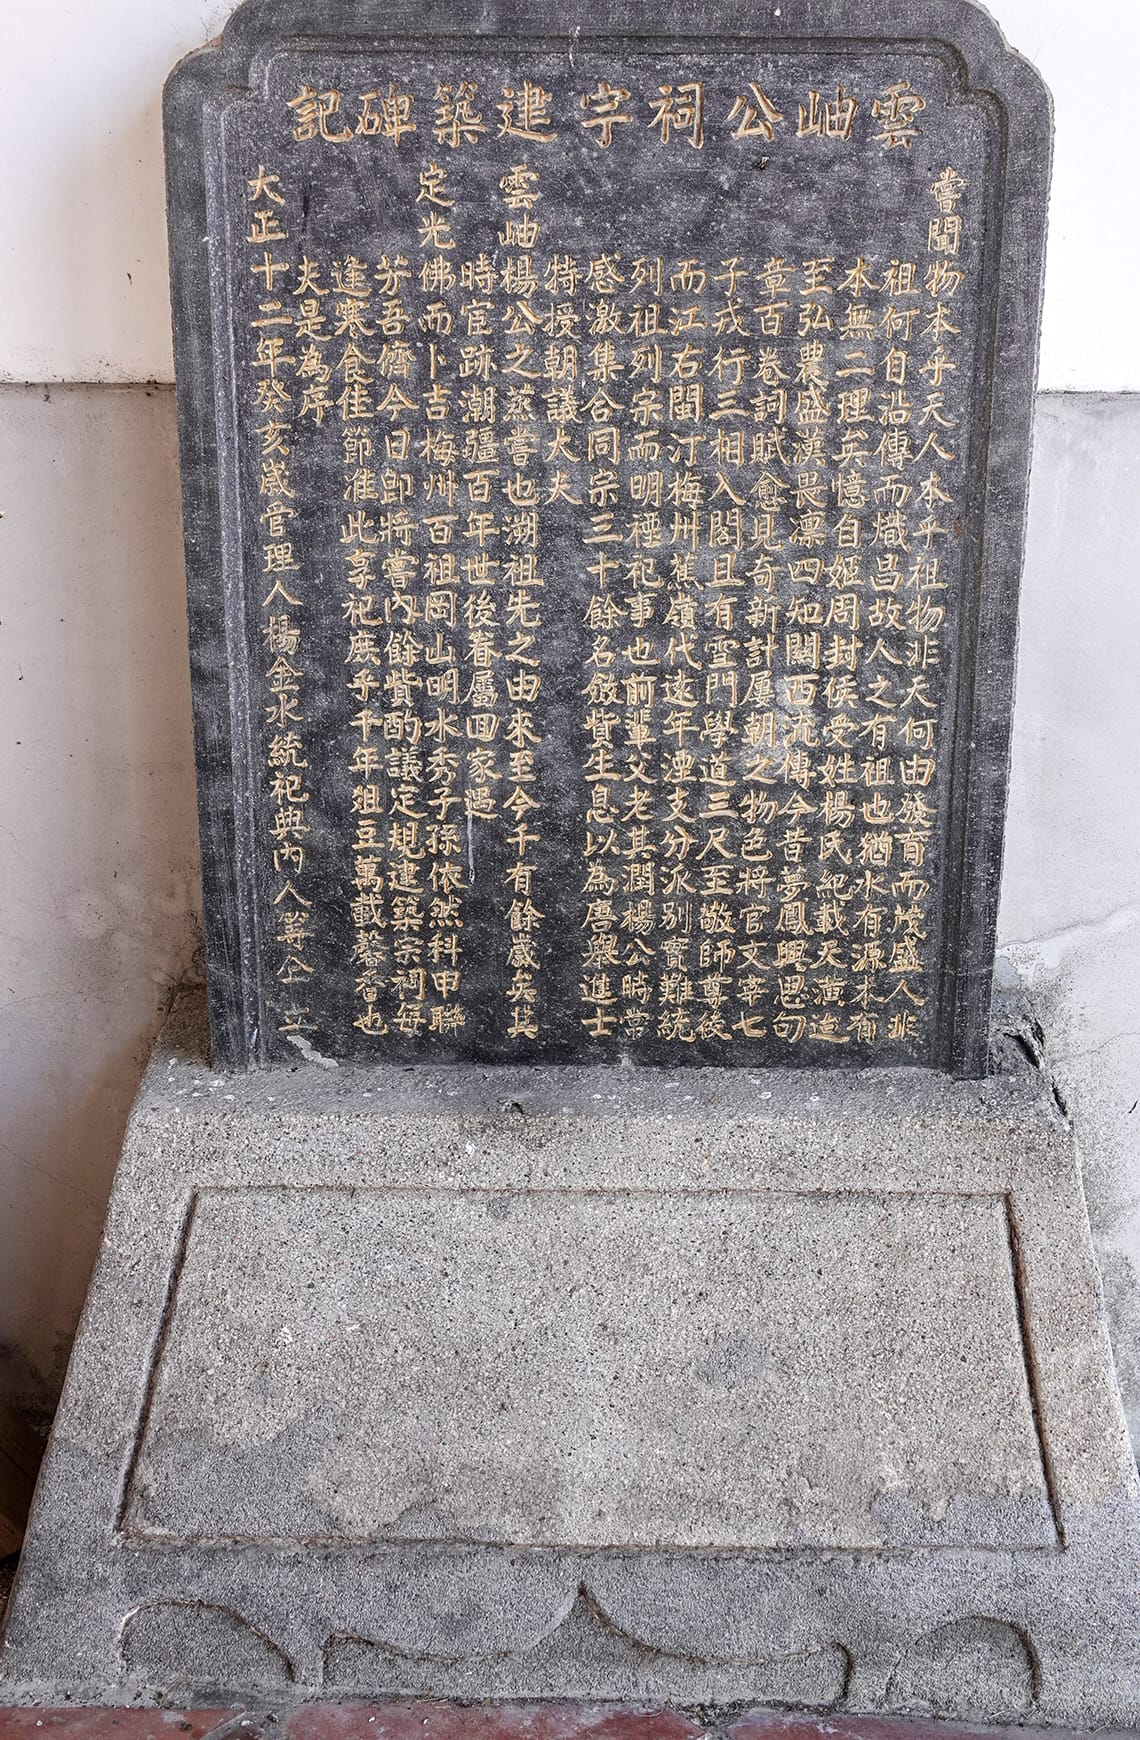 雲岫公祠宇建築碑記
嘗聞物本乎天人本乎祖物非天何由發育而茂盛人非
祖何自沾傳而熾昌故人之有祖也猶水有源木有
本無二理矣憶自姬周封侯受姓楊氏紀載天潢迨
至弘農盛漢畏凛四知關西流傳今昔夢鳳興思句
章百卷詞賦愈見奇新計屢朝之物色將官文宰七
子戎行三相入閣且有雪門學道三尺至敬師尊後
而江右閩汀梅州蕉嶺代遠年湮支分派别實難統
列祖列宗而明禋祀事也前輩父老其潤楊公時常
感激集合同宗三十餘名斂貲生息以為唐舉進士
特授朝議大夫
雲岫楊公之蒸嘗也溯祖先之由來至今千有餘歲矣其
時宦跡潮疆百年世後眷屬回家遇
定光佛而卜吉梅州百祖岡山明水秀子孫依然科甲聯
芬吾儕今日即將嘗內餘貲酌議定規建築宗祠每
逢寒食佳節准此享祀庶乎千年俎豆萬載馨香也
夫是為序
大正十二年癸亥歲官理人楊金水統祀典內人等仝立